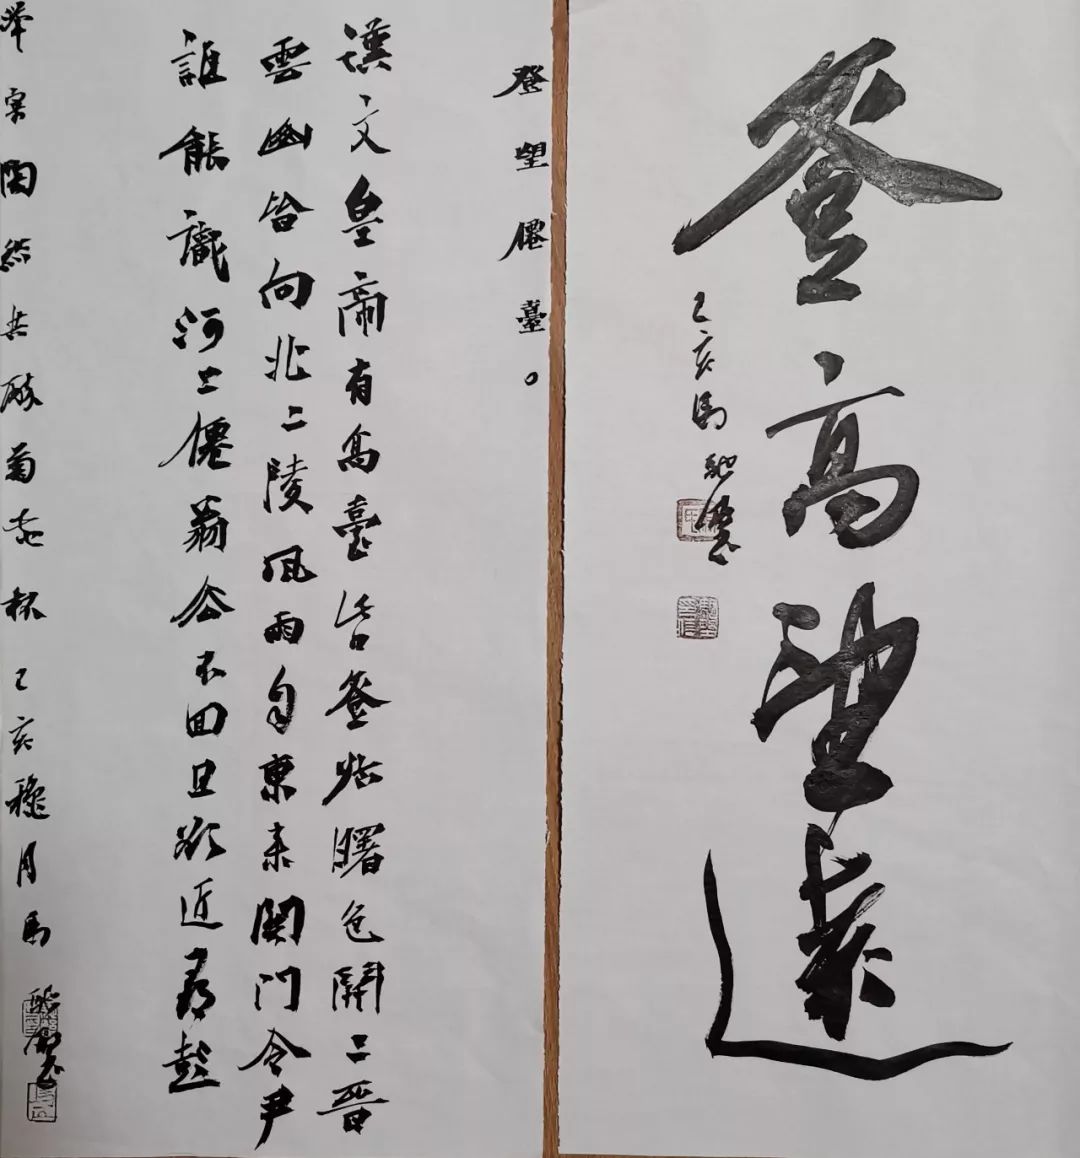 登高望遠
己亥馬
登望僊臺。
漢文皇帝有高臺此日登臨曙色開三晋
雲幽皆向北二陵風雨自東来関門令尹
誰能識河上僊翁去不回且欲近尋彭
宰陶然共醉菊花杯 己亥穐月馬